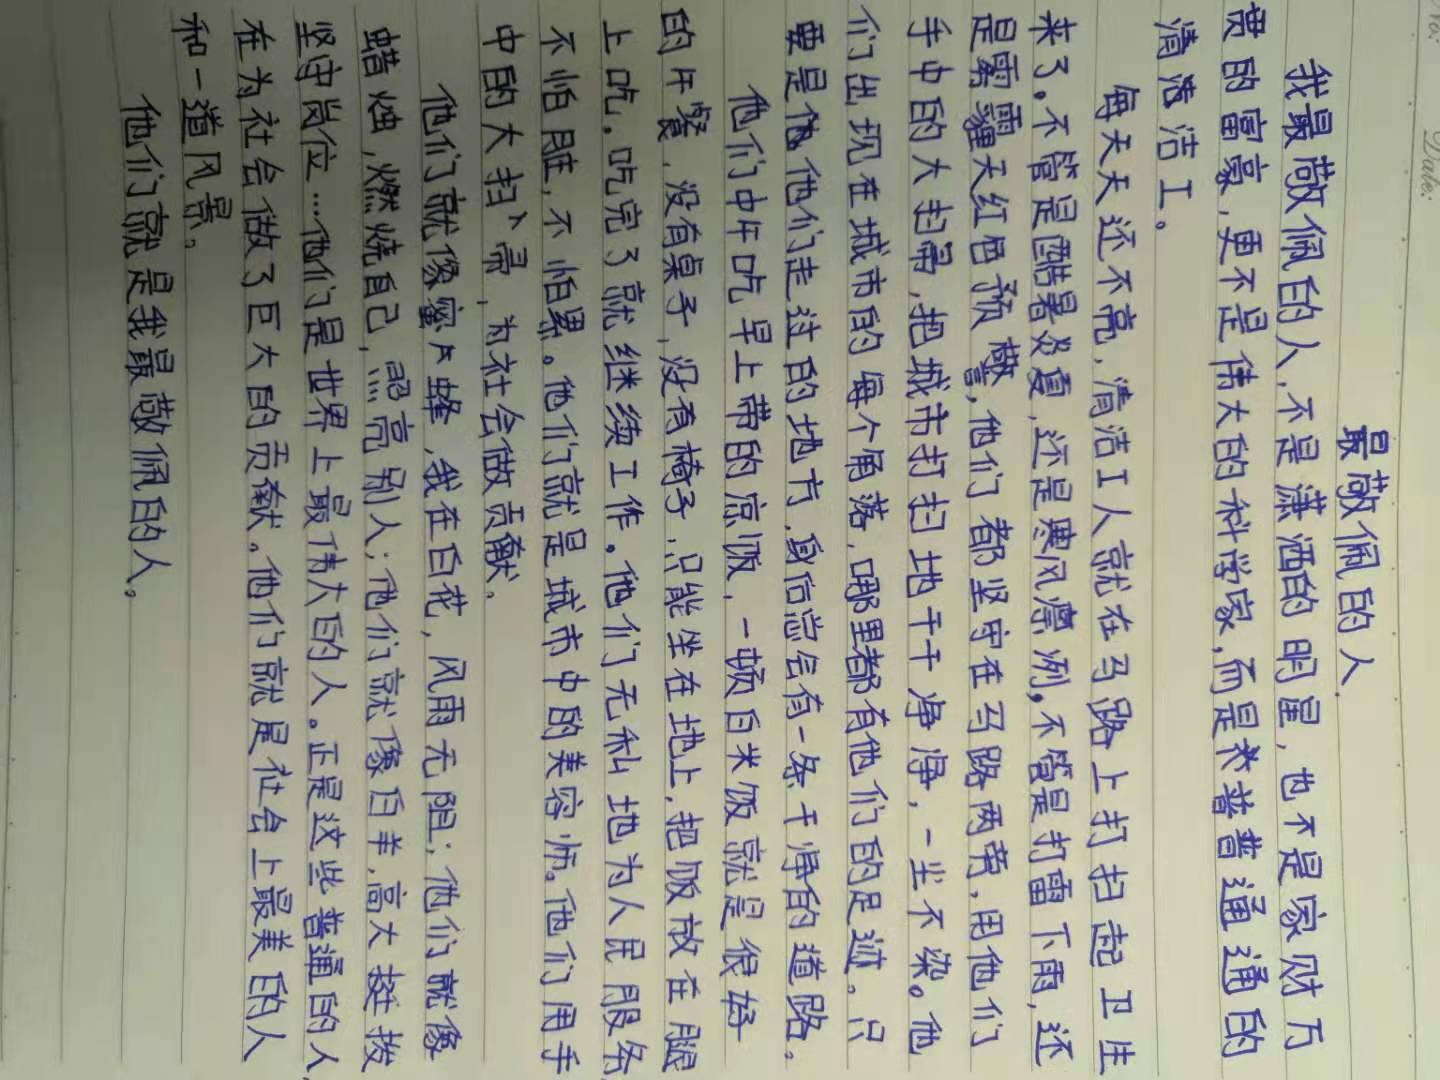 No:
Date:
最敬佩的人
我最敬佩的人,不是潇洒的明星,也不是家财万
贯的富豪,更不是伟大的科学家,而是普普通通的
清洁工。
每天天还不亮,清洁工人就在马路上打扫起卫生
来了。不管是酷暑炎夏,还是寒风凛冽,不管是打雷下雨,还
是雾霾天红色预警,他们都坚守在马路两旁,用他们
手中的大扫帚,把城市打扫地干干净净,一尘不染。他
们出现在城市的每个角落,哪里都有他们的足迹。只
要是他们走过的地方,身后总会有一条干净的道路。
他们中午吃早上带的凉饭,一顿白米饭就是很好
的午餐,没有桌子,没有椅子,只能坐在地上,把饭放在腿
上吃。吃完了就继续工作。他们无私地为人民服务,
不怕脏,不怕累。他们就是城市中的美容师。他们用手
中的大扫帚,为社会做贡献。
他们就像蜜蜂,我在白花,风雨无阻;他们就像
蜡烛,燃烧自己,照亮别人;他们就像白羊,高大挺拨
坚守岗位……他们是世界上最伟大的人。正是这些普通的人,
在为社会做了巨大的贡献。他们就是社会上最美的人
和一道风景。
他们就是我最敬佩的人。